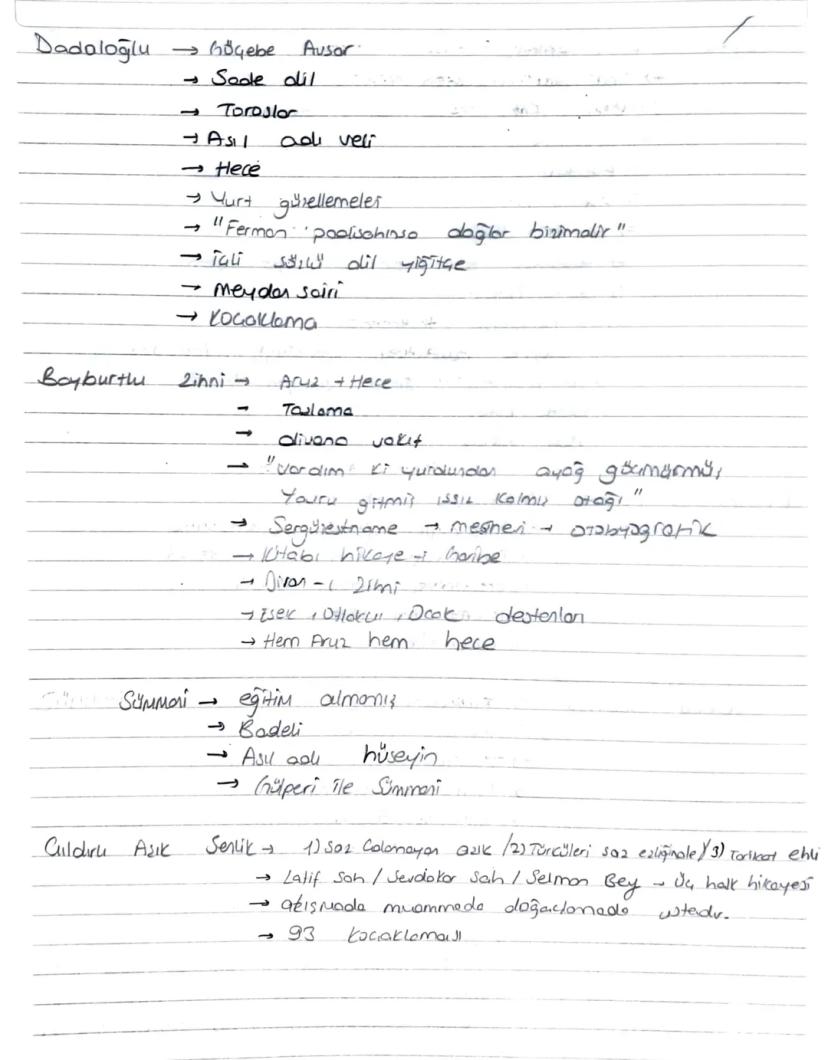 Dadaloğlu → Göçebe Avşar
→ Sade dil
→ Toroslar
→ Asıl adı veli
→ Hece
→ Yurt güzellemeler
→ "Ferman padişahınsa dağlar bizimdir"
→ dil yiğitçe
→ Meydan şairi
→ Koçaklama
Bayburtlu Zihni → Aruz + Hece
→ Taşlama
→ divana vakıf
→ "Vardım ki yurdundan ayağ göçürmüş,
Yavru gitmiş ıssız kalmış otağı"
→ Sergüzestname → mesnevi → otobiyografik
→ Kitabı hikaye-i Garibe
→ Divan-ı Zihni
→ Eşek, Ocak destanları
→ Hem Aruz hem hece
Sümmani → eğitim almamış
→ Badeli
→ Asıl adı hüseyin
→ Gülperi ile Sümmani
Çıldırlı Aşık Şenlik → 1) Saz Çalamayan aşık / 2) Türküleri saz eşliğinde / 3) Tarikat ehli
→ Latif Şah / Sevdakar Şah / Selman Bey → Üç halk hikayesi
→ atışmada muammada doğaçlamada ustadır.
→ 93 Koçaklaması